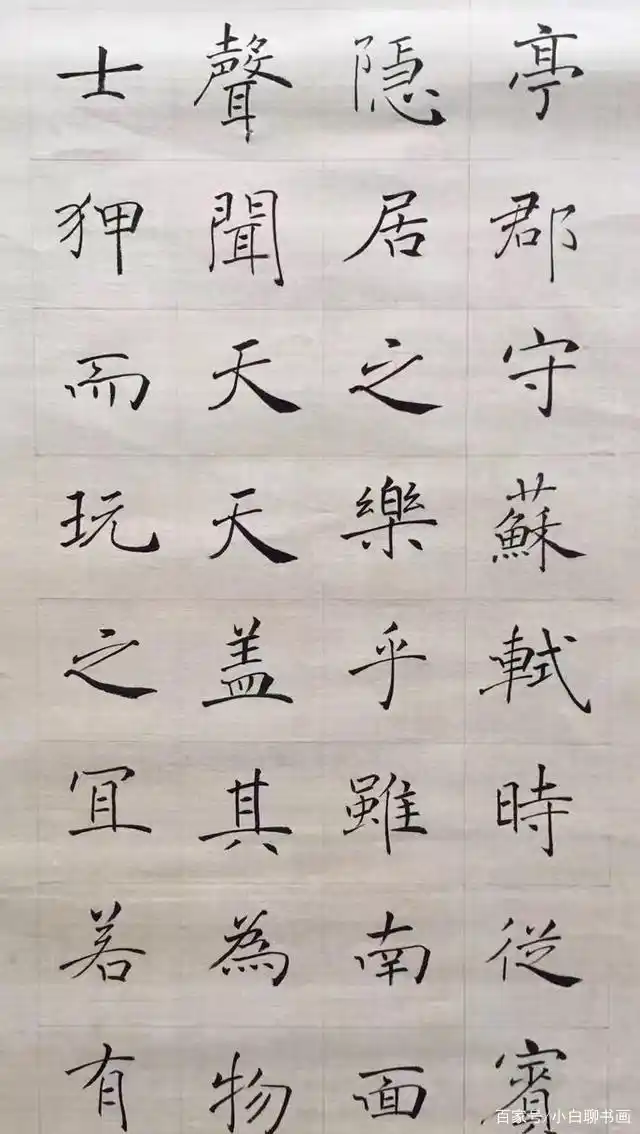 亭郡守蘇軾時從賓
隱居之樂乎雖南面
聲聞天天蓋其為物
士狎而玩之冝若有
百家号/小白聊书画